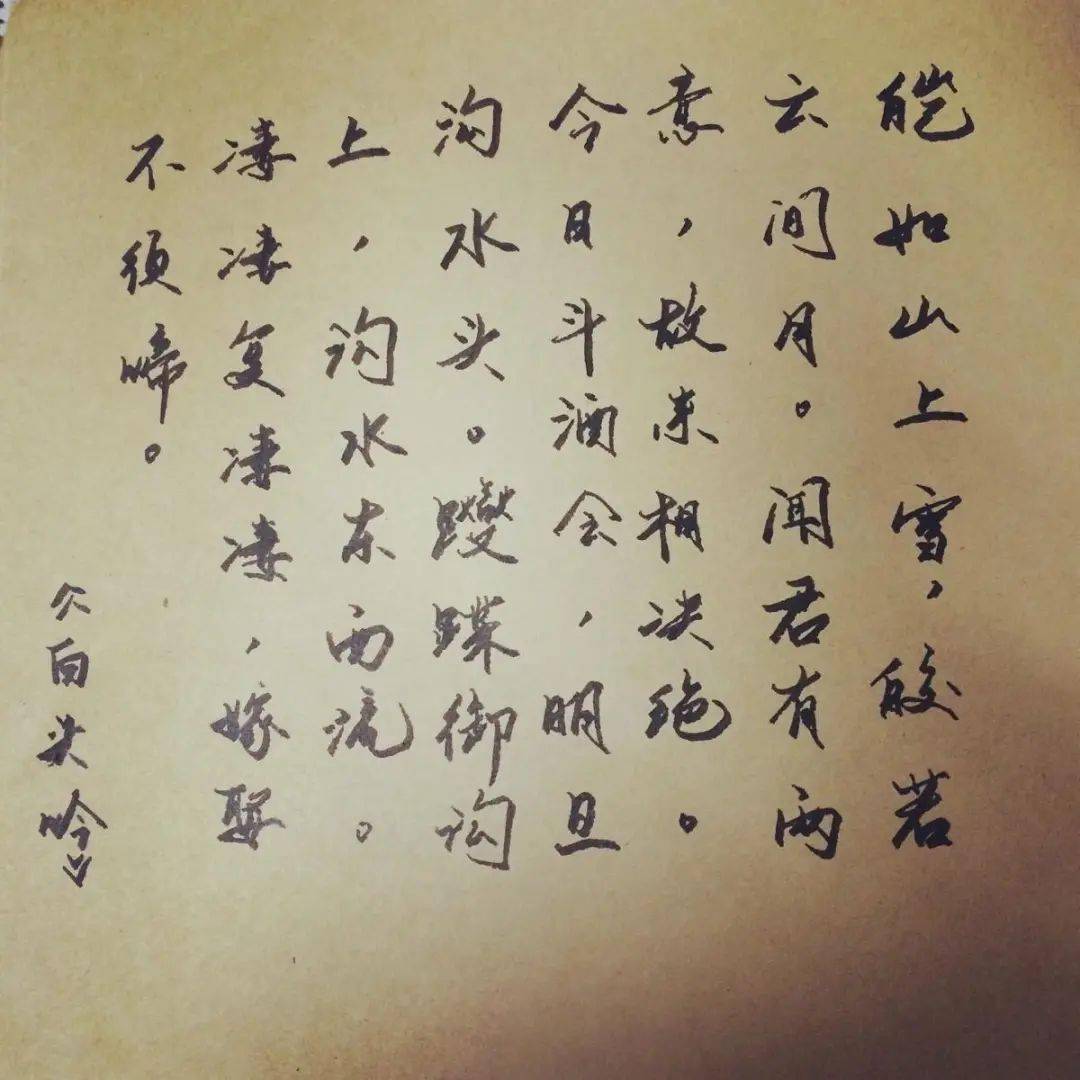 皑如山上雪，皎若
云间月。闻君有两
意，故来相决绝。
今日斗酒会，明旦
沟水头。躞蹀御沟
上，沟水东西流。
凄凄复凄凄，嫁娶
不须啼。
《白头吟》